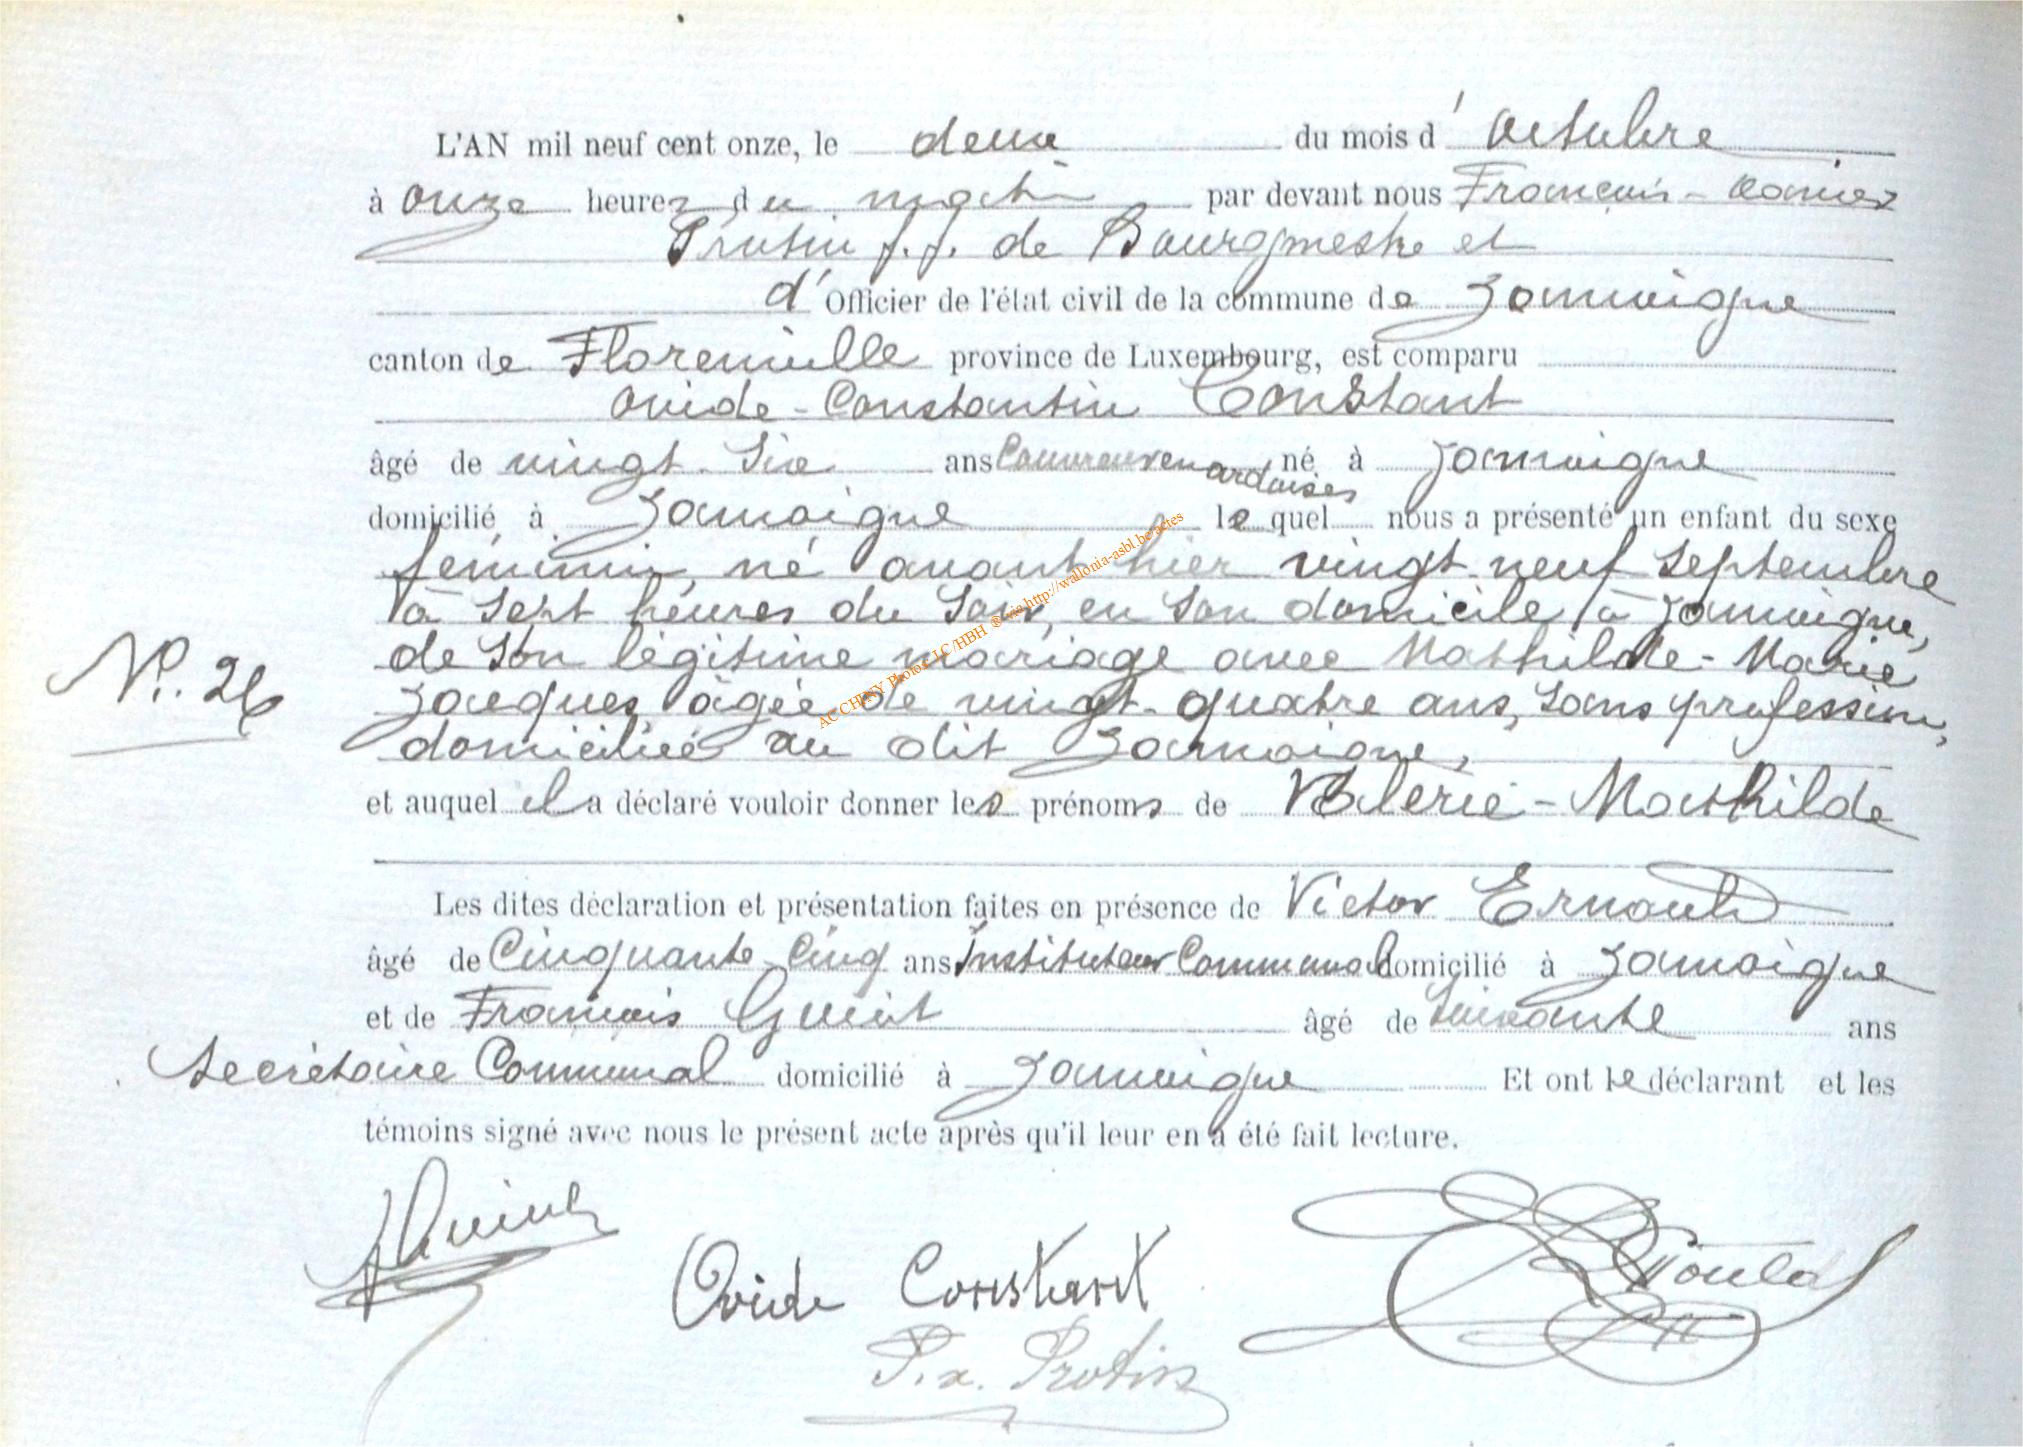 L'AN mil neuf cent onze, le deux du mois d'Octobre
à onze heures du matin par devant nous François - Xavier
Protin f.f. de Bourgmestre et
d'Officier de l'état civil de la commune de Jamoigne
canton de Florenville province de Luxembourg, est comparu
Ovide - Constantin Constant
âgé de vingt-six ans Couvreur en ardoises né à Jamoigne
domicilié à Jamoigne lequel nous a présenté un enfant du sexe
féminin, né avant hier vingt-neuf Septembre
à Sept heures du Soir, en Son domicile à Jamoigne,
N°. 26
de Son légitime mariage avec Mathilde - Marie
Jacques âgée de vingt-quatre ans, Sans profession,
domiciliée au dit Jamoigne,
et auquel il a déclaré vouloir donner les prénoms de Valérie - Mathilde
Les dites déclaration et présentation faites en présence de Victor Ernould
âgé de Cinquante-Cinq ans Instituteur Communal domicilié à Jamoigne
et de François Guiot âgé de Soixante ans
Secrétaire Communal domicilié à Jamoigne Et ont le déclarant et les
témoins signé avec nous le présent acte après qu'il leur en a été fait lecture.
Ovide Constant
F. x. Protin
AC CHINY Photos JC/HBH ® via http://wallonia-asbl.be/actes